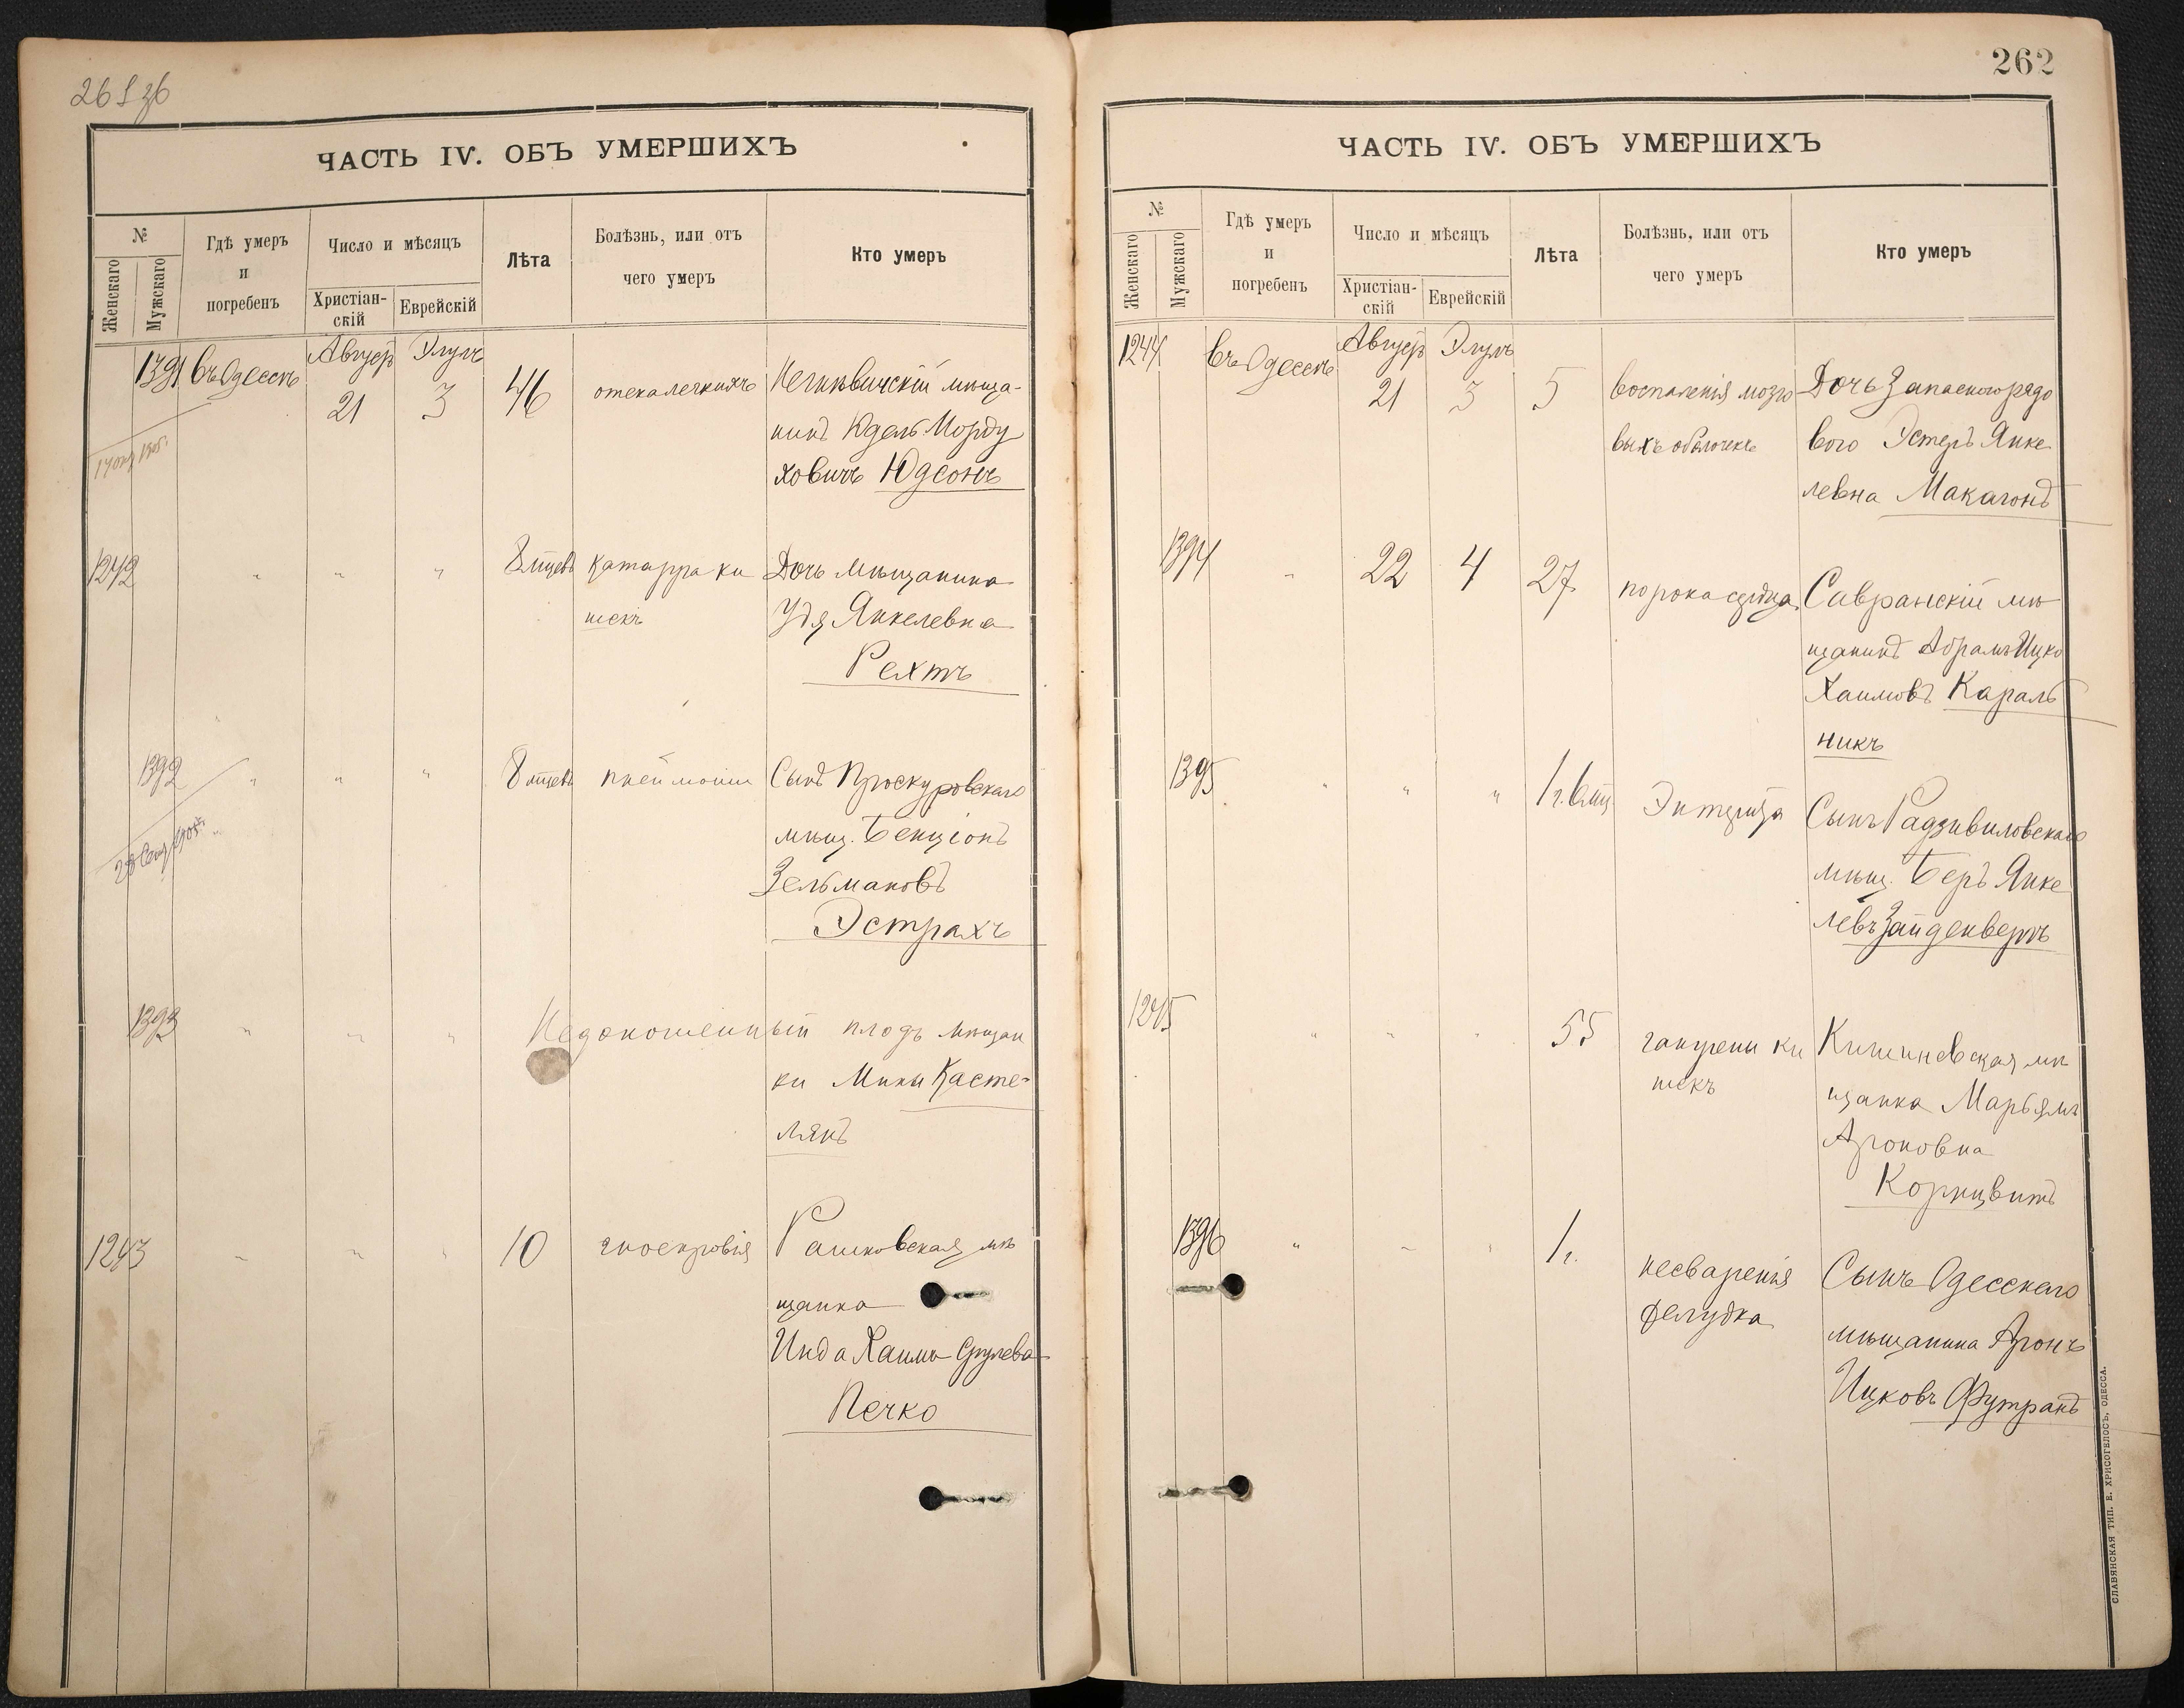 ЧАСТЬ IV. ОБЪ УМЕРШИХЪ
№
Женскаго
Мужскаго
Гдѣ умеръ
и
погребенъ
Число и мѣсяцъ
Христіан-
скій
Еврейскій
Лѣта
Болѣзнь, или отъ
чего умеръ
Кто умеръ
1391
въ Одессѣ
Август
21
Элулъ
3
46
отека легкихъ
мѣща-
нинъ Юдель Морду
ховичъ Юдсонъ
1242
"
"
"
8 мцевъ
катарра ки
шекъ
Дочь мѣщанина
Удя Янкелевна
Рехтъ
1392
"
"
"
8 мцевъ
пнеймоніи
Сынъ Проскуровскаго
мѣщ. Бенціонъ
Зельмановъ
Эстрахъ
1393
"
"
"
Недоношенный плодъ мѣщан
ки Мини Касте-
лянъ
1243
"
"
"
10
гноекровія
Рашковская мѣ
щанка
Инда Хаимъ Срулева
Печко
262
ЧАСТЬ IV. ОБЪ УМЕРШИХЪ
№
Женскаго
Мужскаго
Гдѣ умеръ
и
погребенъ
Число и мѣсяцъ
Христіан-
скій
Еврейскій
Лѣта
Болѣзнь, или отъ
чего умеръ
Кто умеръ
1244
въ Одессѣ
Август
21
Элулъ
3
5
воспаленія мозго
выхъ оболочекъ
Дочь Запасного рядо
вого Эстеръ Янке
левна Макагонъ
1394
"
22
4
27
порока сердца
Савранскій мѣ
щанинъ Абрамъ Ицко
Хаимовъ Караль
никъ
1395
"
"
"
1 г. 6 мц
Энтерита
Сынъ Радзивиловскаго
мѣщ. Беръ Янке
левъ Зайденвергъ
1245
"
"
"
55
гангрены ки
шекъ
Кишиневская мѣ
щанка Марьямъ
Ароновна
Корнцвитъ
1396
"
"
"
1 г.
несваренія
желудка
Сынъ Одесскаго
мѣщанина Аронъ
Ицковъ Футранъ
СЛАВЯНСКАЯ ТИП. Е. ХРИСОГЕЛОСЪ, ОДЕССА.